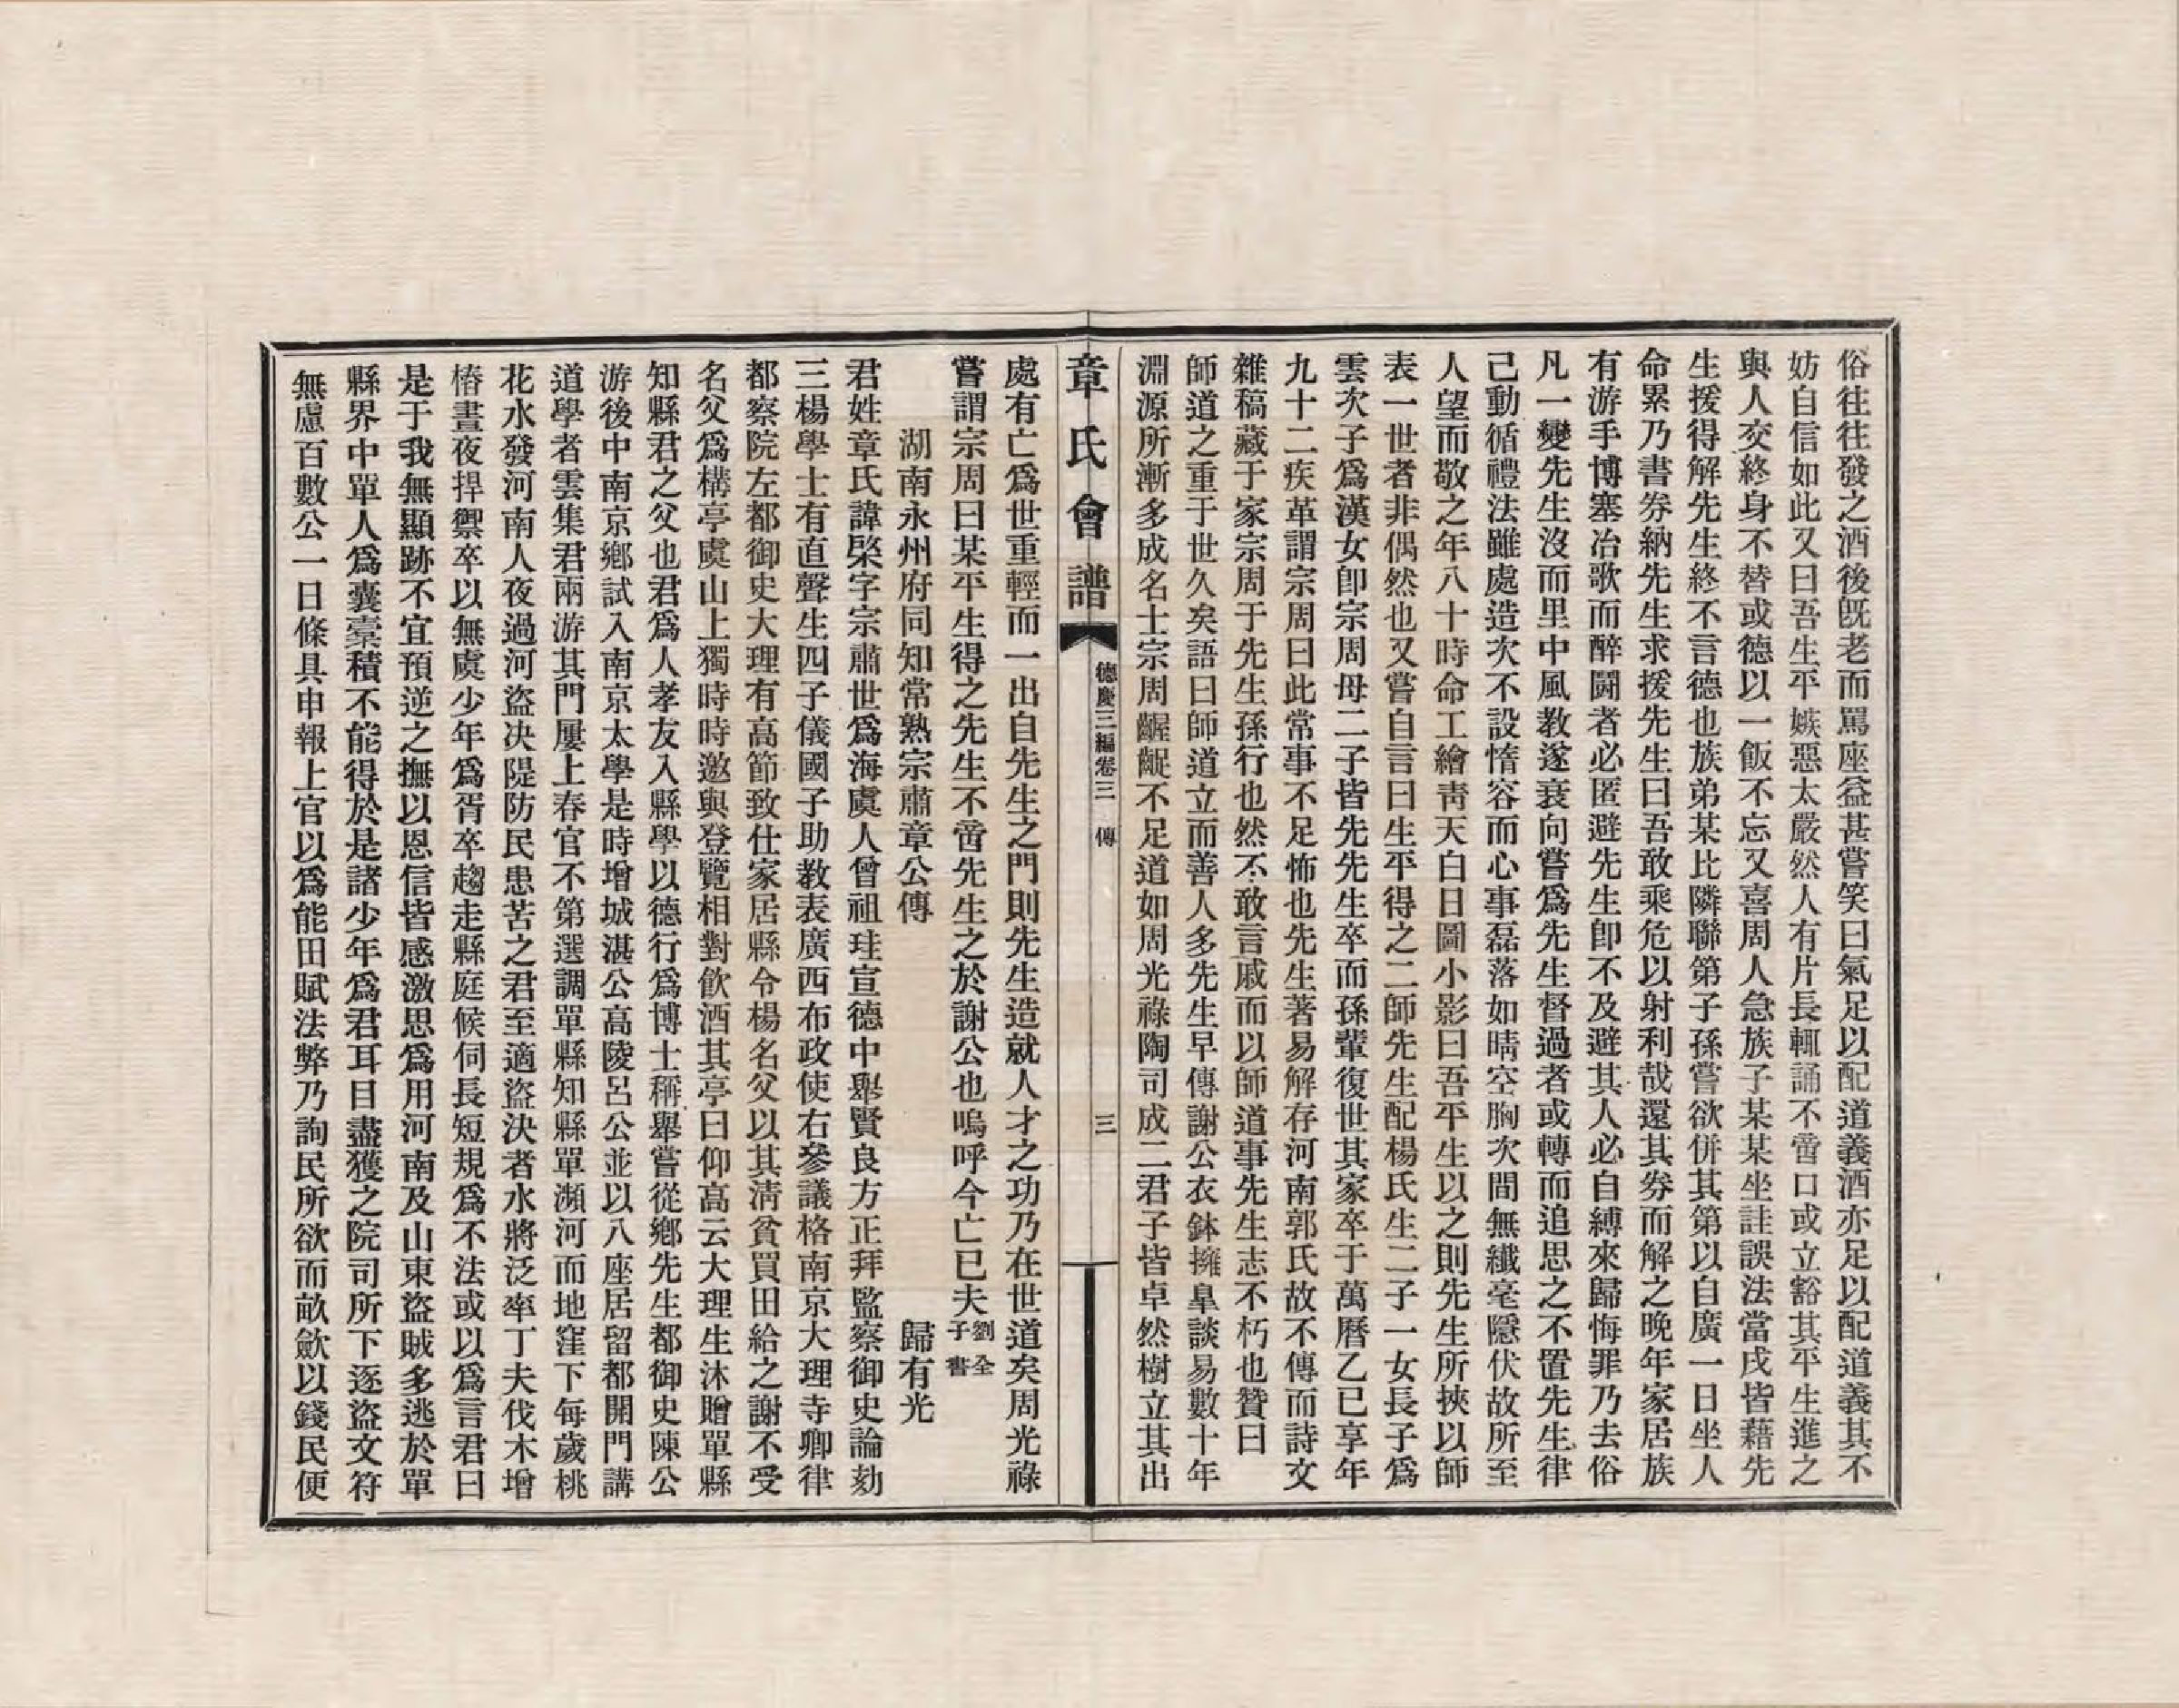 俗往往發之酒後旣老而罵座益甚嘗笑曰氣足以配道義酒亦足以配道義其不
妨自信如此又曰吾生平嫉惡太嚴然人有片長輒誦不啻口或立豁其平生進之
與人交終身不替或德以一飯不忘又喜周人急族子某某坐詿誤法當戍皆藉先
生援得解先生終不言德也族弟某比隣聯第子孫嘗欲併其第以自廣一日坐人
命累乃書券納先生求援先生曰吾敢乘危以射利哉還其券而解之晚年家居族
有游手博塞冶歌而醉鬪者必匿避先生卽不及避其人必自縛來歸悔罪乃去俗
凡一變先生沒而里中風教遂衰向嘗爲先生督過者或轉而追思之不置先生律
己動循禮法雖處造次不設惰容而心事磊落如晴空胸次間無纖毫隱伏故所至
人望而敬之年八十時命工繪靑天白日圖小影曰吾平生以之則先生所挾以師
表一世者非偶然也又嘗自言曰生平得之二師先生配楊氏生二子一女長子爲
雲次子爲漢女卽宗周母二子皆先先生卒而孫輩復世其家卒于萬曆乙巳享年
九十二疾革謂宗周曰此常事不足怖也先生著易解存河南郭氏故不傳而詩文
雜稿藏于家宗周于先生孫行也然不敢言戚而以師道事先生志不朽也贊曰
師道之重于世久矣語曰師道立而善人多先生早傳謝公衣鉢擁皐談易數十年
淵源所漸多成名士宗周齷齪不足道如周光祿陶司成二君子皆卓然樹立其出
章氏會譜 德慶三編卷三 傳 三
處有亡爲世重輕而一出自先生之門則先生造就人才之功乃在世道矣周光祿
嘗謂宗周曰某平生得之先生不啻先生之於謝公也嗚呼今亡已夫劉子全書
湖南永州府同知常熟宗肅章公傳 歸有光
君姓章氏諱棨字宗肅世爲海虞人曾祖珪宣德中舉賢良方正拜監察御史論劾
三楊學士有直聲生四子儀國子助教表廣西布政使右參議格南京大理寺卿律
都察院左都御史大理有高節致仕家居縣令楊名父以其淸貧買田給之謝不受
名父爲構亭虞山上獨時時邀與登覽相對飮酒其亭曰仰高云大理生沐贈單縣
知縣君之父也君爲人孝友入縣學以德行爲博士稱舉嘗從鄕先生都御史陳公
游後中南京鄕試入南京太學是時增城湛公高陵呂公並以八座居留都開門講
道學者雲集君兩游其門屢上春官不第選調單縣知縣單瀕河而地窪下每歲桃
花水發河南人夜過河盜決隄防民患苦之君至適盜決者水將泛率丁夫伐木增
樁晝夜捍禦卒以無虞少年爲胥卒趨走縣庭候伺長短規爲不法或以爲言君曰
是于我無顯跡不宜預逆之撫以恩信皆感激思爲用河南及山東盜賊多逃於單
縣界中單人爲囊橐積不能得於是諸少年爲君耳目盡獲之院司所下逐盜文符
無慮百數公一日條具申報上官以爲能田賦法弊乃詢民所欲而畝歛以錢民便